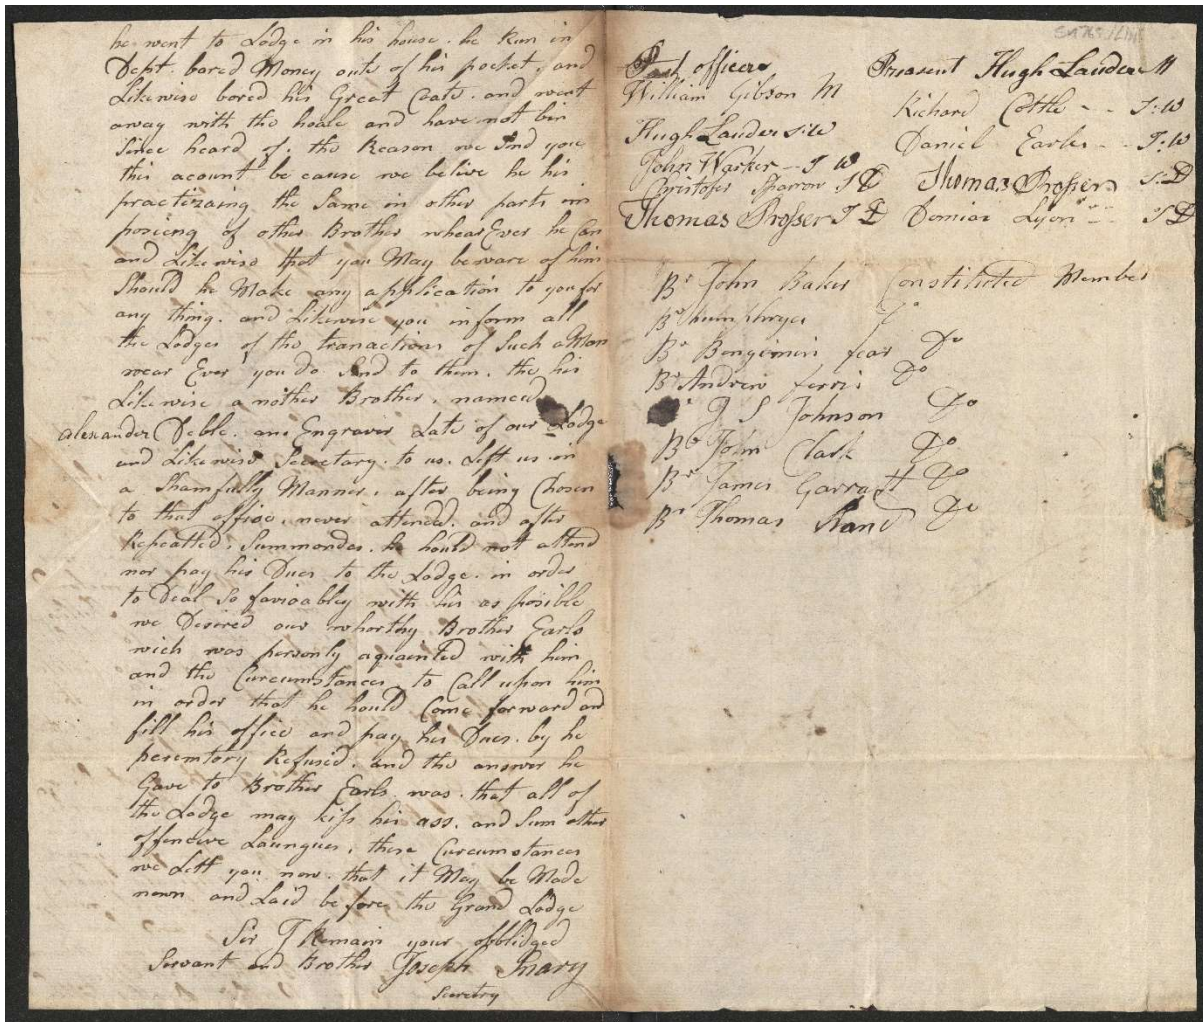 he went to Lodge in his house. he Run in
Dept. bored Money outs of his pocket, and
Likewise bored his Great Coate. and went
away with the hoale and have not bin
Since heard of. the Reason we Send you
this acount be cause we belive he his
practizaing the Same in other parts in
posieng of other Brother whear Ever he Can
and Likewise that you May beware of him
Should he Make any application to you for
any thing. and Likewise you inform all
the Lodges of the tranactions of Such a Man
wear Ever you do Send to them. the his
Likewise a nother Brother. named
alexander Deble. an Engraver Late of our Lodge
and Likewise Secretary. to us. Left us. in
a Shamfully Manner. after being Chosen
to that office. never attened. and after
Repeatted. Summondes. he hould not attend
nor pay his Dues to the Lodge. in order
to Deal So favioabley with his as posible
we Desired our whorthy Brother Earls
wich was personly aquainted with him
and the Curcumstances to Call upon him
in order that he hould Come forward and
fill his office and pay his Dues. by he
peremtory Refused. and the answer he
Gave to Brother Earls. was. that all of
the Lodge may kiss his ass. and Sum other
offencive Laungues. these Curcumstances
we Lett you now. that it May be Made
nown and Laid before the Grand Lodge
Sir I Remain your obblidged
Servant and Brother Joseph Snary
Secretry
Past officers
William Gibson M
Hugh Lauder S:W
John Warker -- J W
Christofer Sparrow S D
Thomas Prosser J D
Preasent Hugh Lauder M
Richard Cottle -- S:W
Daniel Earles -- J:W
Thomas Prossers S:D
Demias Lyon -- J D
Br John Baker Constituted Member
Br humphryes
Br Bengimin fear Do
Br Andrew ferris Do
J S Johnson Do
Br John Clark Do
Br James Garratt Do
Br Thomas Do